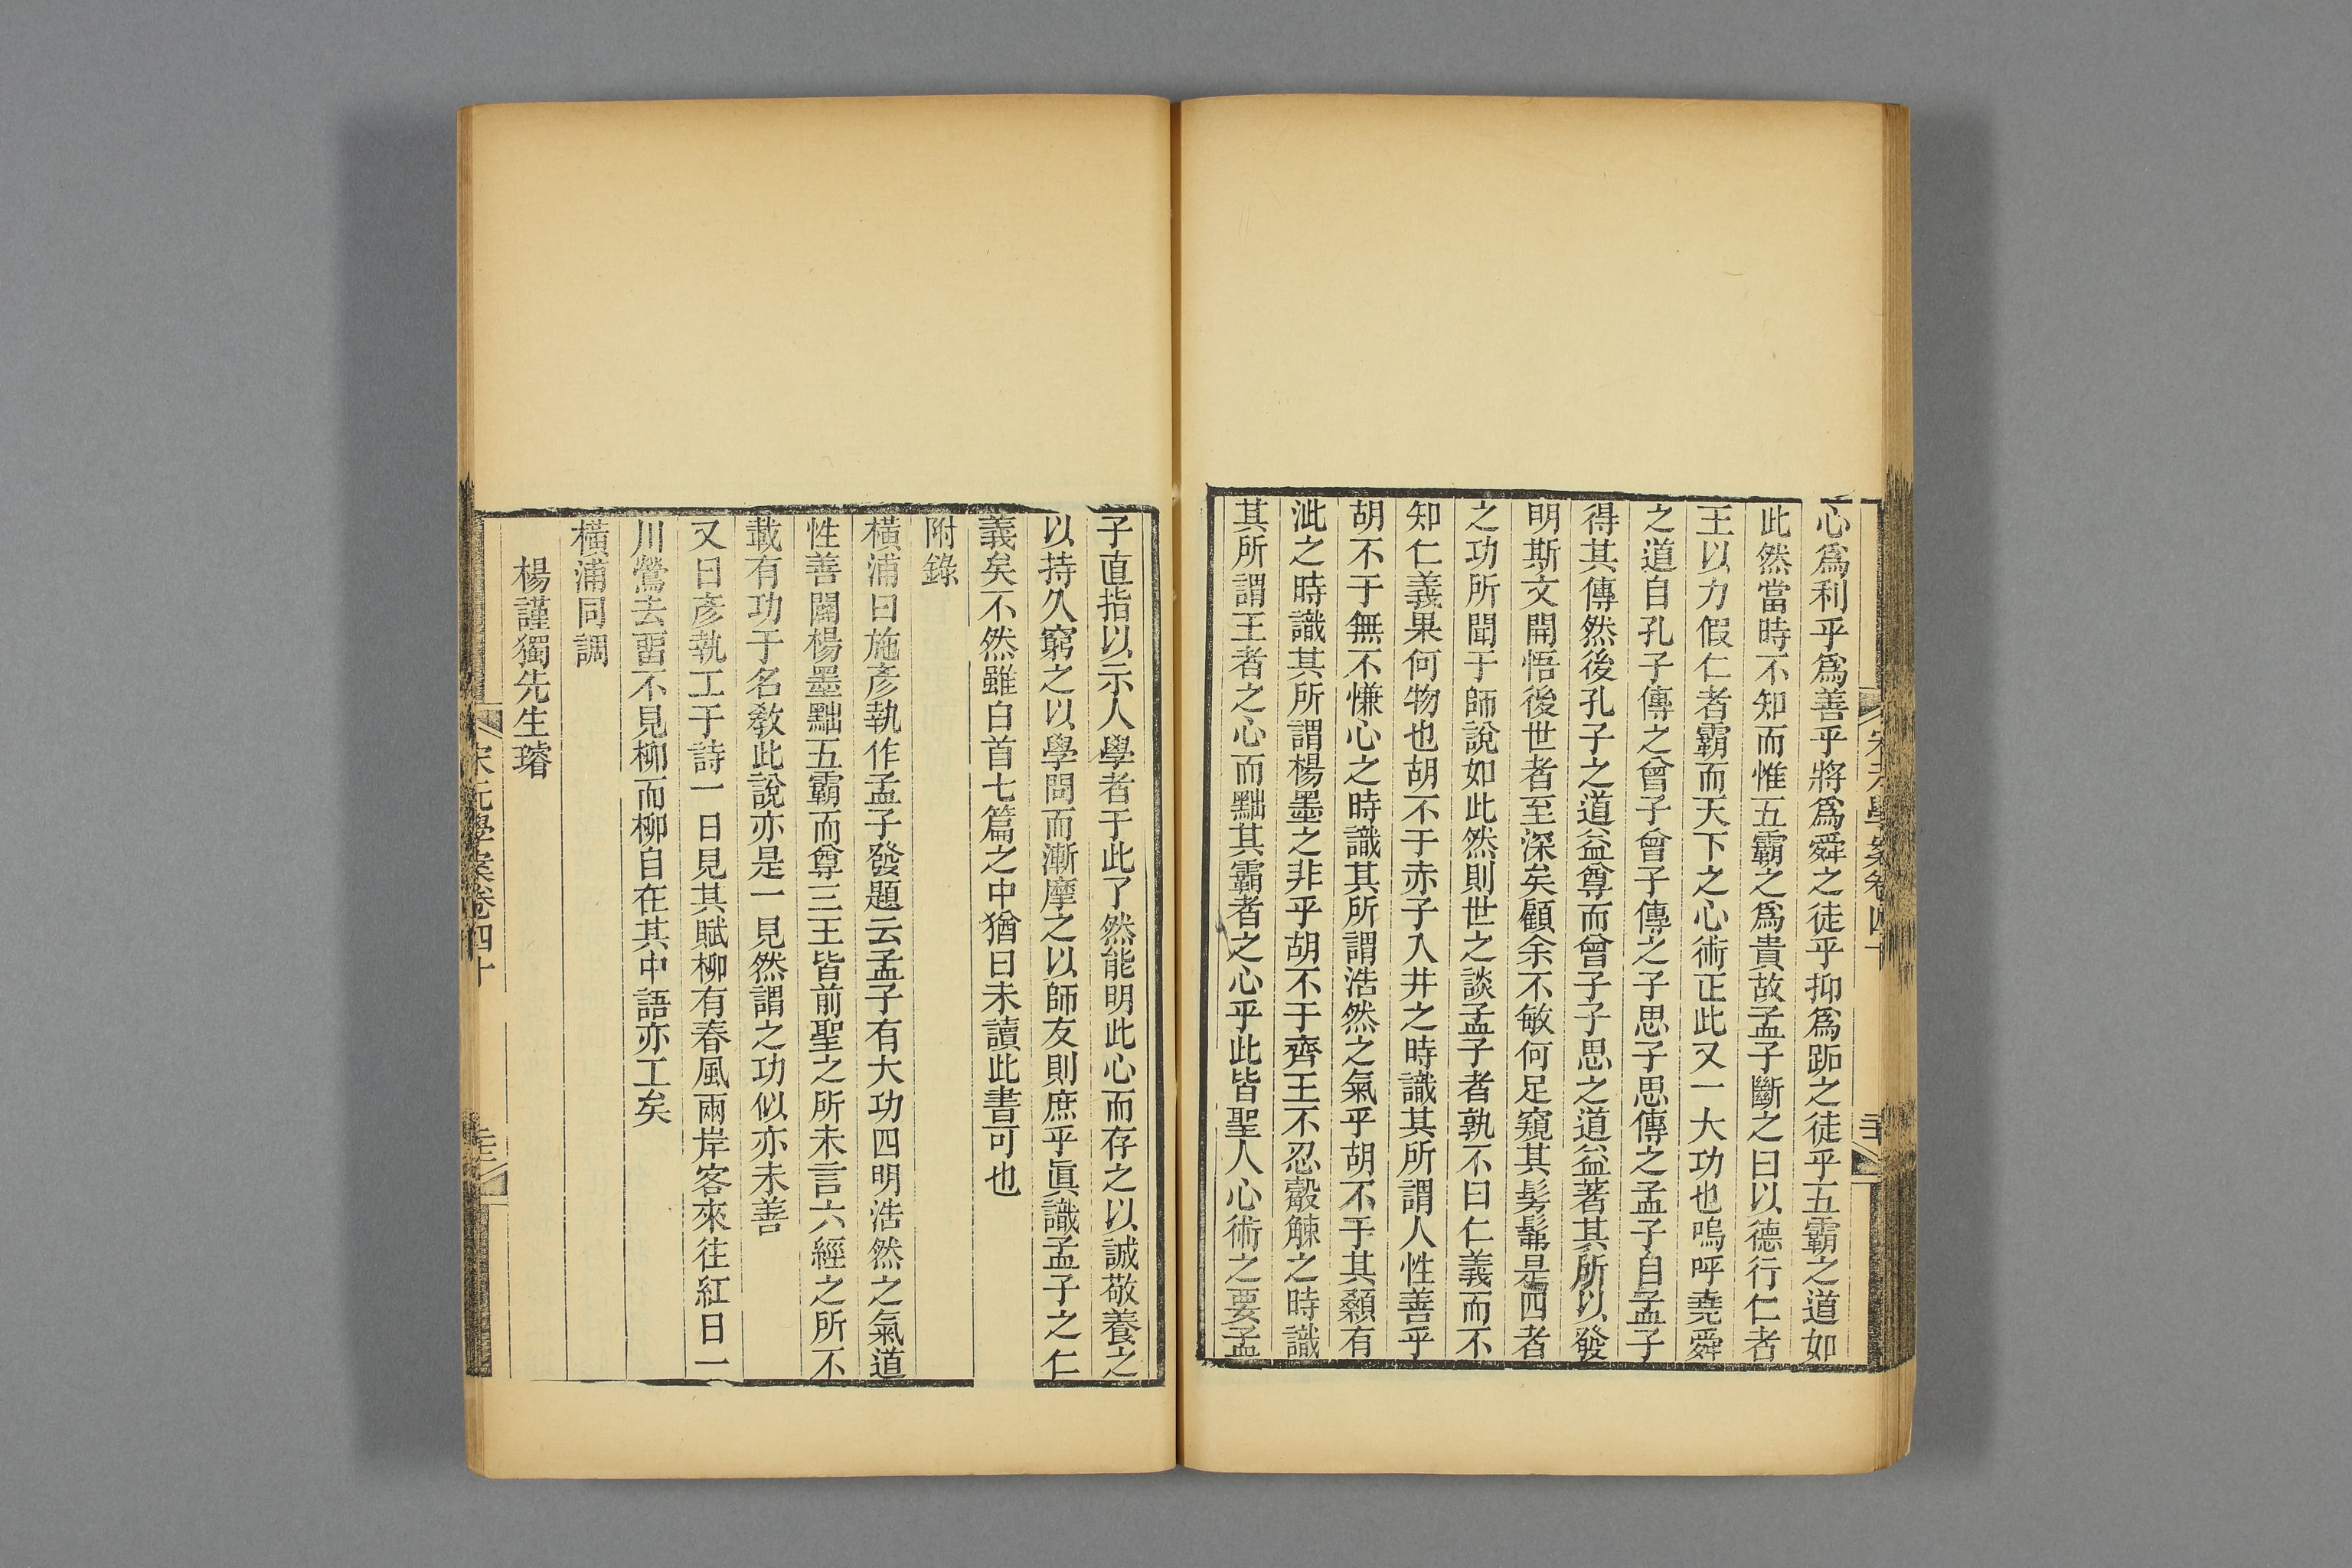 心爲利乎爲善乎將爲舜之徒乎抑爲跖之徒乎五霸之道如
此然當時不知而惟五霸之爲貴故孟子斷之曰以德行仁者
王以力假仁者霸而天下之心術正此又一大功也嗚呼堯舜
之道自孔子傳之曾子曾子傳之子思子思傳之孟子自孟子
得其傳然後孔子之道益尊而曾子子思之道益著其所以發
明斯文開悟後世者至深矣顧余不敏何足窺其髣髴是四者
之功所聞于師說如此然則世之談孟子者孰不曰仁義而不
知仁義果何物也胡不于赤子入井之時識其所謂人性善乎
胡不于無不慊心之時識其所謂浩然之氣乎胡不于其顙有
泚之時識其所謂楊墨之非乎胡不于齊王不忍觳觫之時識
其所謂王者之心而黜其霸者之心乎此皆聖人心術之要孟
子直指以示人學者于此了然能明此心而存之以誠敬養之
以持久窮之以學問而漸摩之以師友則庶乎眞識孟子之仁
義矣不然雖白首七篇之中猶曰未讀此書可也
附錄
橫浦曰施彥執作孟子發題云孟子有大功四明浩然之氣道
性善闢楊墨黜五霸而尊三王皆前聖之所未言六經之所不
載有功于名敎此說亦是一見然謂之功似亦未善
又曰彥執工于詩一日見其賦柳有春風兩岸客來往紅日一
川鶯去畱不見柳而柳自在其中語亦工矣
橫浦同調
楊謹獨先生璿
宋元學案卷四十